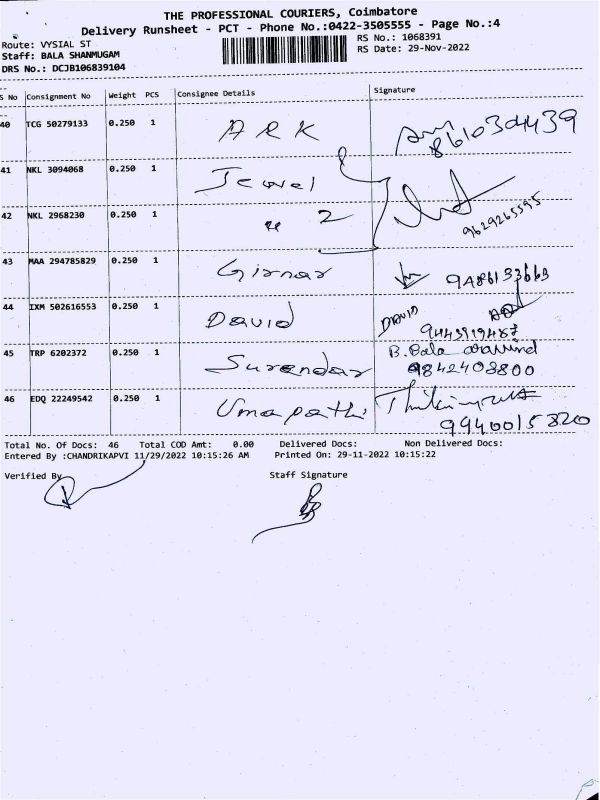 THE PROFESSIONAL COURIERS, Coimbatore
Delivery Runsheet - PCT - Phone No.:0422-3505555 - Page No.:4
Route: VYSIAL ST
RS No.: 1068391
Staff: BALA SHANMUGAM
RS Date: 29-Nov-2022
DRS No.: DCJB106839104
S No Consignment No Weight PCS Consignee Details Signature
40 TCG 50279133 0.250 1 ARK
41 NKL 3094068 0.250 1 Jewel
42 NKL 2968230 0.250 1 " 2 9629265595
43 MAA 294785829 0.250 1 Girnar 9486133663
44 IXM 502616553 0.250 1 David DAVID
45 TRP 6202372 0.250 1 Surendar B. Bala aravind
9842408800
46 EDQ 22249542 0.250 1 Umapathi
9940015820
Total No. Of Docs: 46 Total COD Amt: 0.00 Delivered Docs: Non Delivered Docs:
Entered By :CHANDRIKAPVI 11/29/2022 10:15:26 AM Printed On: 29-11-2022 10:15:22
Verified By Staff Signature